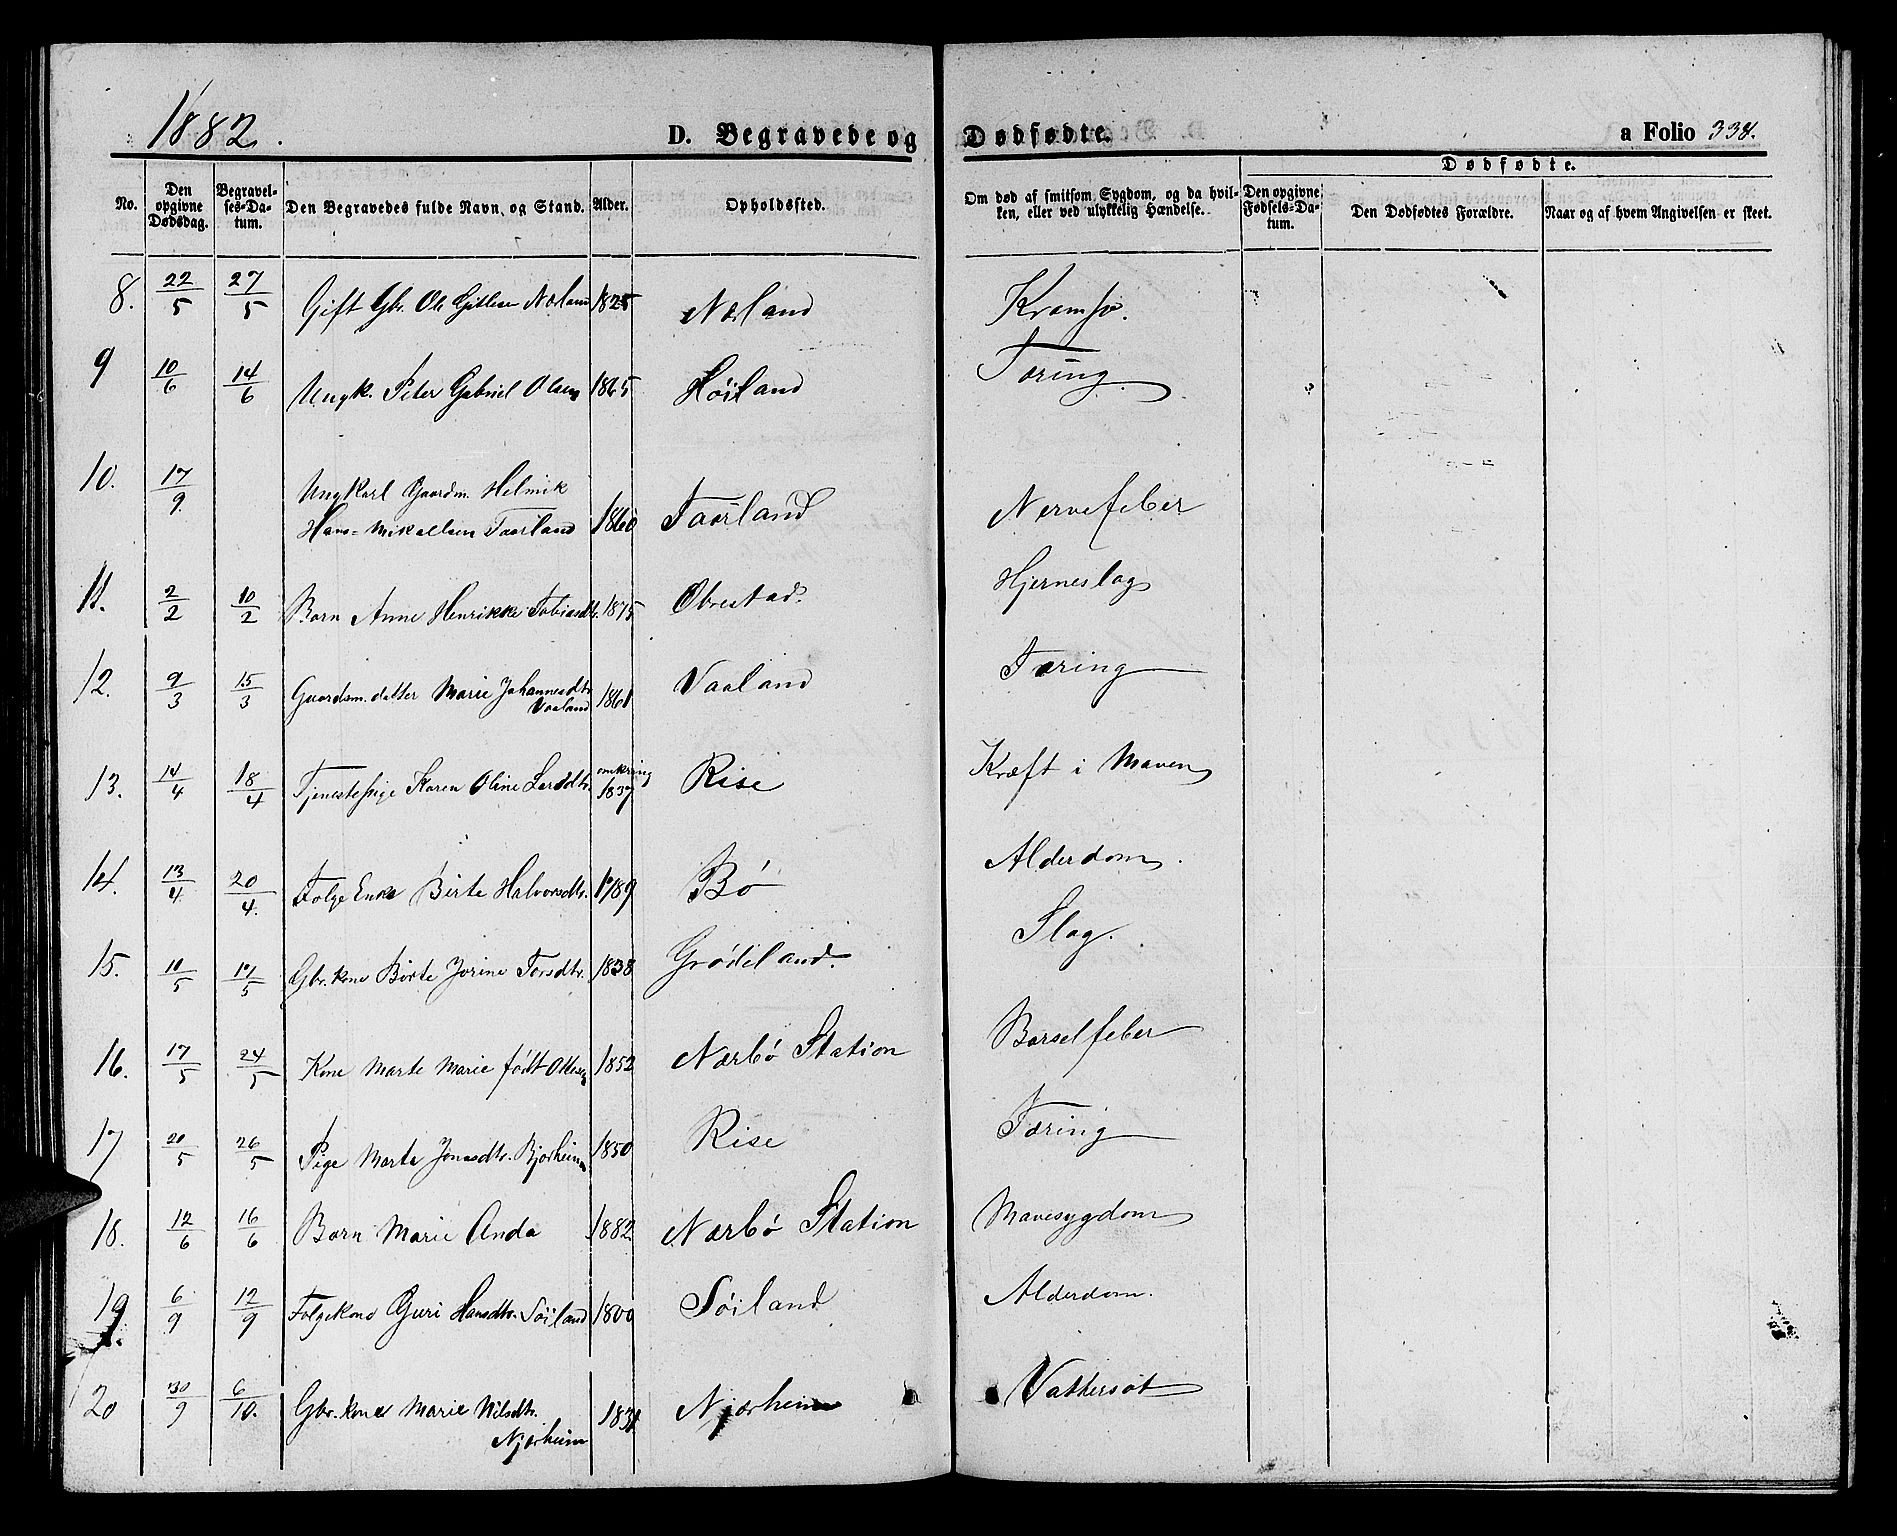 1882.
D. Begravede og Dødfødte.
a Folio 338.
No.
Den opgivne Dødsdag.
Begravelses-Datum.
Den Begravedes fulde Navn, og Stand.
Alder.
Opholdssted.
Om død af smitsom Sygdom, og da hvilken, eller ved ulykkelig Hændelse.
Dødfødte.
Den opgivne Fødsels-Datum.
Den Dødfødtes Forældre.
Naar og af hvem Angivelsen er skeet.
8. 22/5 27/5 Gift Gbr. Ole Gitlesen Nærland 1825 Nærland
9 10/6 14/6 Ungk. Peter Gabriel Olsen 1865 Høiland Tæring
10. 17/9 Ungkarl Gaardm. Helmik
Hans=Mikallsen Taarland 1860 Taarland Nervefeber
11. 2/2 10/2 Barn Anne Henrikke Tobiasdtr. 1875 Obrestad. Hjerneslag
12. 9/3 15/3 Gaardsm. datter Marie Johannesdtr
Vaaland 1861 Vaaland Tæring
13. 14/4 18/4 Tjenestepige Karen Oline Larsdtr. omkring 1837 Rise Kræft i Maven
14. 13/4 20/4. Folge Enke Birte Halvorsdtr. 1789 Bø Alderdom.
15. 10/5 17/5 Gbr. kone Børte Jorine Torsdtr. 1838 Grødeland. Slag.
16. 17/5 24/5 Kone Marte Marie født Ollesen 1852 Nærbø Station Barselfeber
17 20/5 26/5 Pige Marta Jonasdtr. Bjorheim 1850 Rise Tæring
18. 12/6 16/6 Barn Marie Anda 1882 Nærbø Station Mavesygdom
19. 6/9 12/9 Folgekone Guri Hansdtr. Søiland 1800 Søiland Alderdom.
20 30/9 6/10. Gbr. kone Marie Nilsdtr.
Njærheim 1831 Njærheim Vattersot